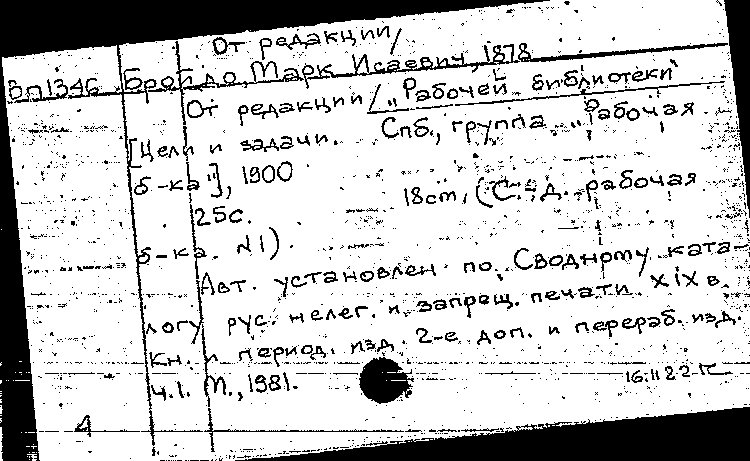 От редакции/
Вп1346 Бройдо, Марк Исаевич, 1878
От редакции/„Рабочей библиотеки"
[Цели и задачи. Спб., группа „Рабочая
б-ка"], 1900
25с. 18cm, (С.-д. рабочая
б-ка. №1).
Авт. установлен по Сводному ката-
логу рус. нелег. и запрещ. печати XIX в.
Кн. и период. изд. 2-е доп. и перераб. изд.
ч.1. М., 1981.
4